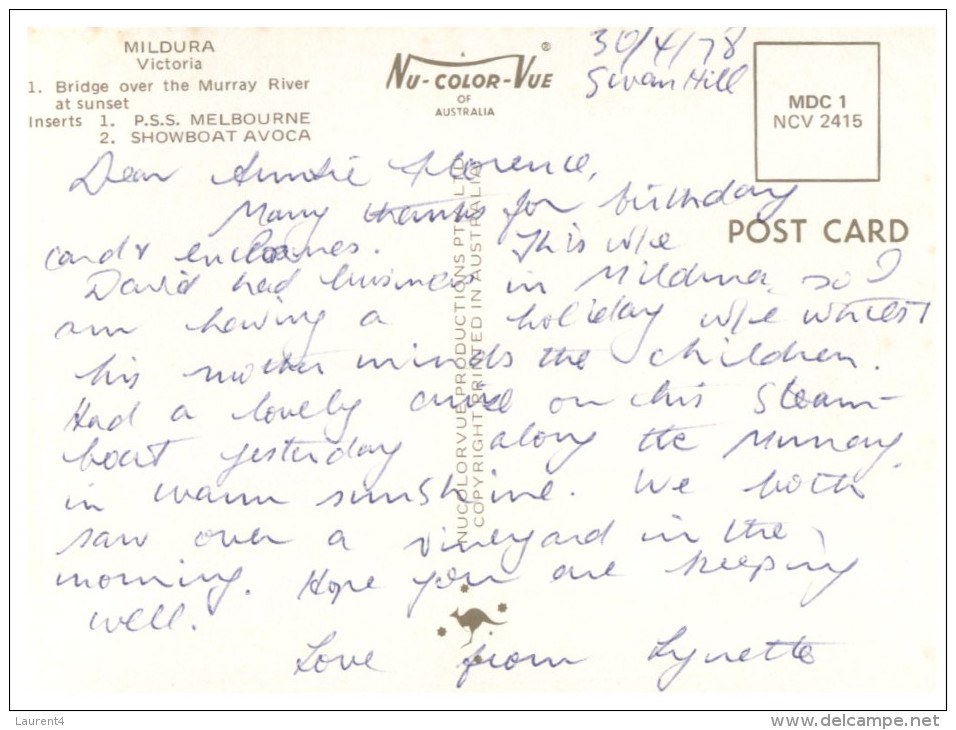 MILDURA
Victoria
1. Bridge over the Murray River
at sunset
Inserts 1. P.S.S. MELBOURNE
2. SHOWBOAT AVOCA
A
NU-COLOR-VUE ®
OF
AUSTRALIA
30/4/78
Swan Hill
MDC 1
NCV 2415
POST CARD
Dear Auntie Florence,
Many thanks for birthday
card & enclosures. This w/e
David had business in Mildura, so I
am having a holiday w/e whilst
his mother minds the children.
Had a lovely cruise on this Steam-
boat yesterday along the Murray,
in warm sunshine. We both
saw over a vineyard in the
morning. Hope you are keeping
well.
Love from Lynette
NUCOLORVUE PRODUCTIONS PTY. LTD.
COPYRIGHT PRINTED IN AUSTRALIA
Laurent4
www.delcampe.net